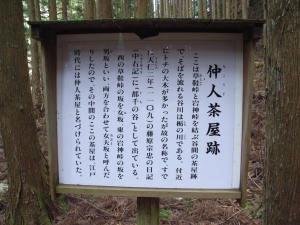 仲人茶屋跡
ここは草鞋峠と岩神峠を結ぶ谷間の茶屋跡
で、そばを流れる谷川は栃の川である。付近
にトチの大木が多かったが故の名称で、すで
に天仁二年(一一〇九)の藤原宗忠の日記
『中右記』に「都千の谷」として出ている。
西の草鞋峠の坂を女坂、東の岩神峠の坂を
男坂といい、両方を合わせて女夫坂と呼んだ
りしたので、その中間のここの茶屋は、江戸
時代には仲人茶屋と名づけられていた。